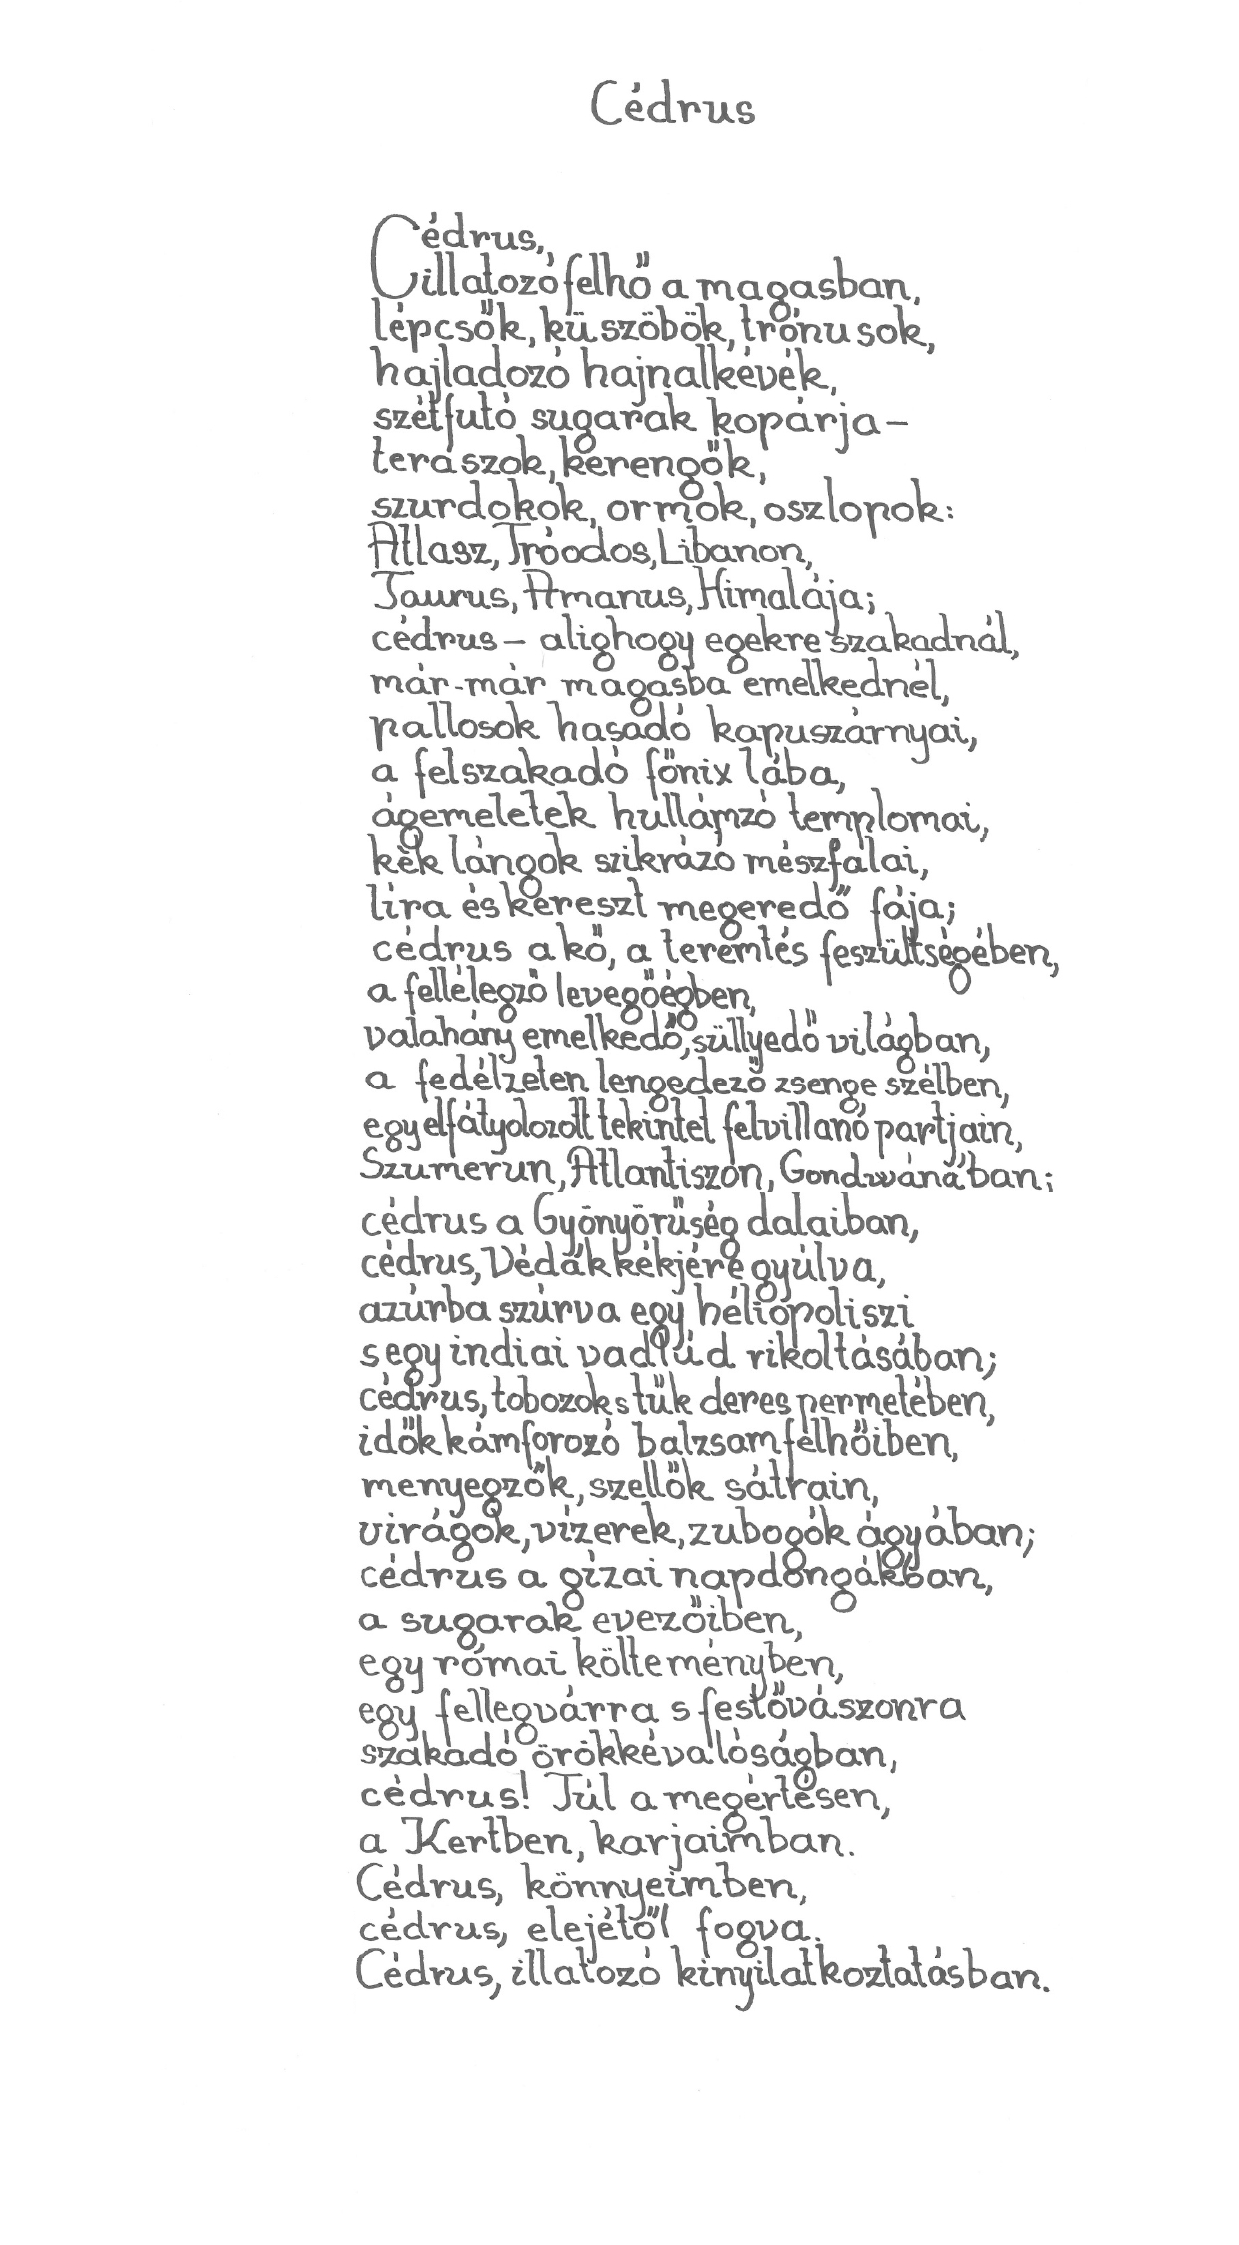 Cédrus
Cédrus,
illatozó felhő a magasban,
lépcsők, küszöbök, trónusok,
hajladozó hajnalkévék,
szétfutó sugarak kopárja –
teraszok, kerengők,
szurdokok, ormok, oszlopok:
Atlasz, Tróodos, Libanon,
Taurus, Amanus, Himalája;
cédrus – alighogy egekre szakadnál,
már-már magasba emelkednél,
pallosok hasadó kapuszárnyai,
a felszakadó főnix lába,
ágemeletek hullámzó templomai,
kék lángok szikrázó mészfalai,
líra és kereszt megeredő fája;
cédrus a kő, a teremtés feszültségében,
a fellélegző levegőégben,
valahány emelkedő, süllyedő világban,
a fedélzeten lengedező zsenge szélben,
egy elfátyolozott tekintet felvillanó partjain,
Szumerun, Atlantiszon, Gondwánában;
cédrus a Gyönyörűség dalaiban,
cédrus, Védák kékjére gyúlva,
azúrba szúrva egy héliopoliszi
s egy indiai vadlúd rikoltásában;
cédrus, tobozok s tűk deres permetében,
idők kámforozó balzsamfelhőiben,
menyegzők, szellők sátrain,
virágok, vízerek, zubogók ágyában;
cédrus a gízai napdongákban,
a sugarak evezőiben,
egy római költeményben,
egy fellegvárra s festővászonra
szakadó örökkévalóságban,
cédrus! Túl a megértésen,
a Kertben, karjaimban.
Cédrus, könnyeimben,
cédrus, elejétől fogva.
Cédrus, illatozó kinyilatkoztatásban.